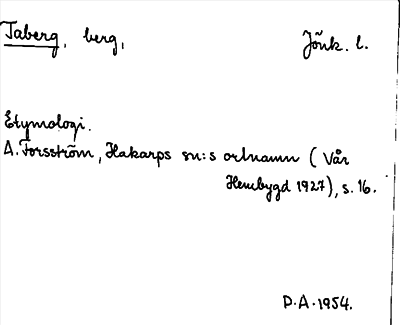 Taberg, berg, Jönk. l.
Etymologi.
A. Forsström, Hakarps sn:s ortnamn (Vår
Hembygd 1927), s. 16.
D.A. 1954.